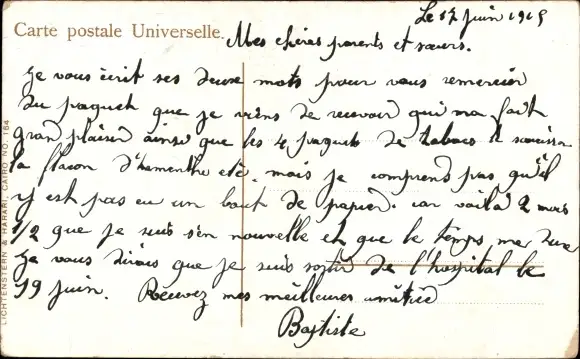 Le 17 juin 1915
Carte postale Universelle.
Mes chères parents et sœurs.
Je vous écrit ses deuxe mots pour vous remercier
du paqueh que je viens de recevoir qui ma fait
gran plaisir ainsi que les 4 paquets de tabacs et saucisson
la flacon d'hamenthe etc. mais je comprend pas qu'il
y est pas eu un bout de papier. car voilà 2 mois
1/2 que je suis s'en nouvelle et que le temps me dure
je vous dirais que je suis sortir de l'hospital le
19 juin. Recevez mes meilleures amitiée
Baptiste
LICHTENSTERN & HARARI, CAIRO NO. 164